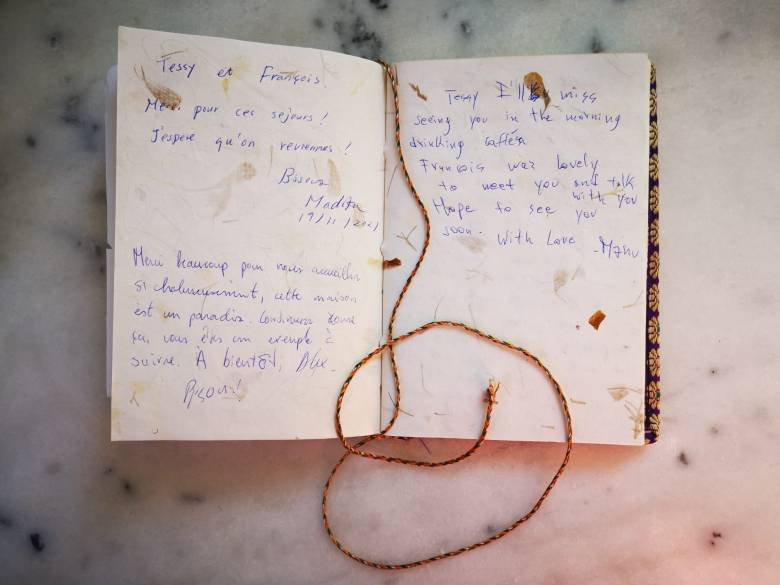 Tessy et François
Merci pour ces sejours !
J'espere qu'on reviennes !
Bisous
19/11/2021
Merci beaucoup pour nous accueillir
si chaleureusement, cette maison
est un paradis. Continuez
vous êtes un exemple à
suivre. À bientôt, Alex.
Bisous!
Tessy I'll miss
seeing you in the morning
drinking
François was lovely
to meet you and talk
with you
Hope to see you
soon.
With Love - Manu